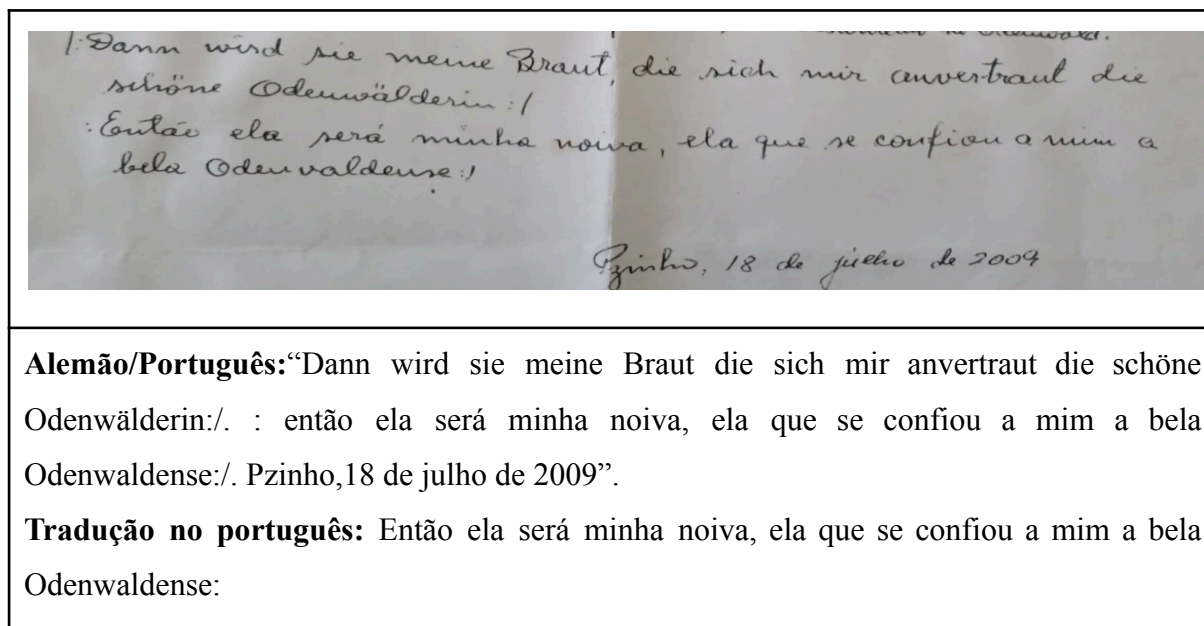 Odenwald.
/:Dann wird sie meine Braut, die sich mir anvertraut die
schöne Odenwälderin:/
:Então ela será minha noiva, ela que se confiou a mim a
bela Odenvaldense:/
Pzinho, 18 de julho de 2009
Alemão/Português:“Dann wird sie meine Braut die sich mir anvertraut die schöne
Odenwälderin:/. : então ela será minha noiva, ela que se confiou a mim a bela
Odenwaldense:/. Pzinho,18 de julho de 2009”.
Tradução no português: Então ela será minha noiva, ela que se confiou a mim a bela
Odenwaldense: